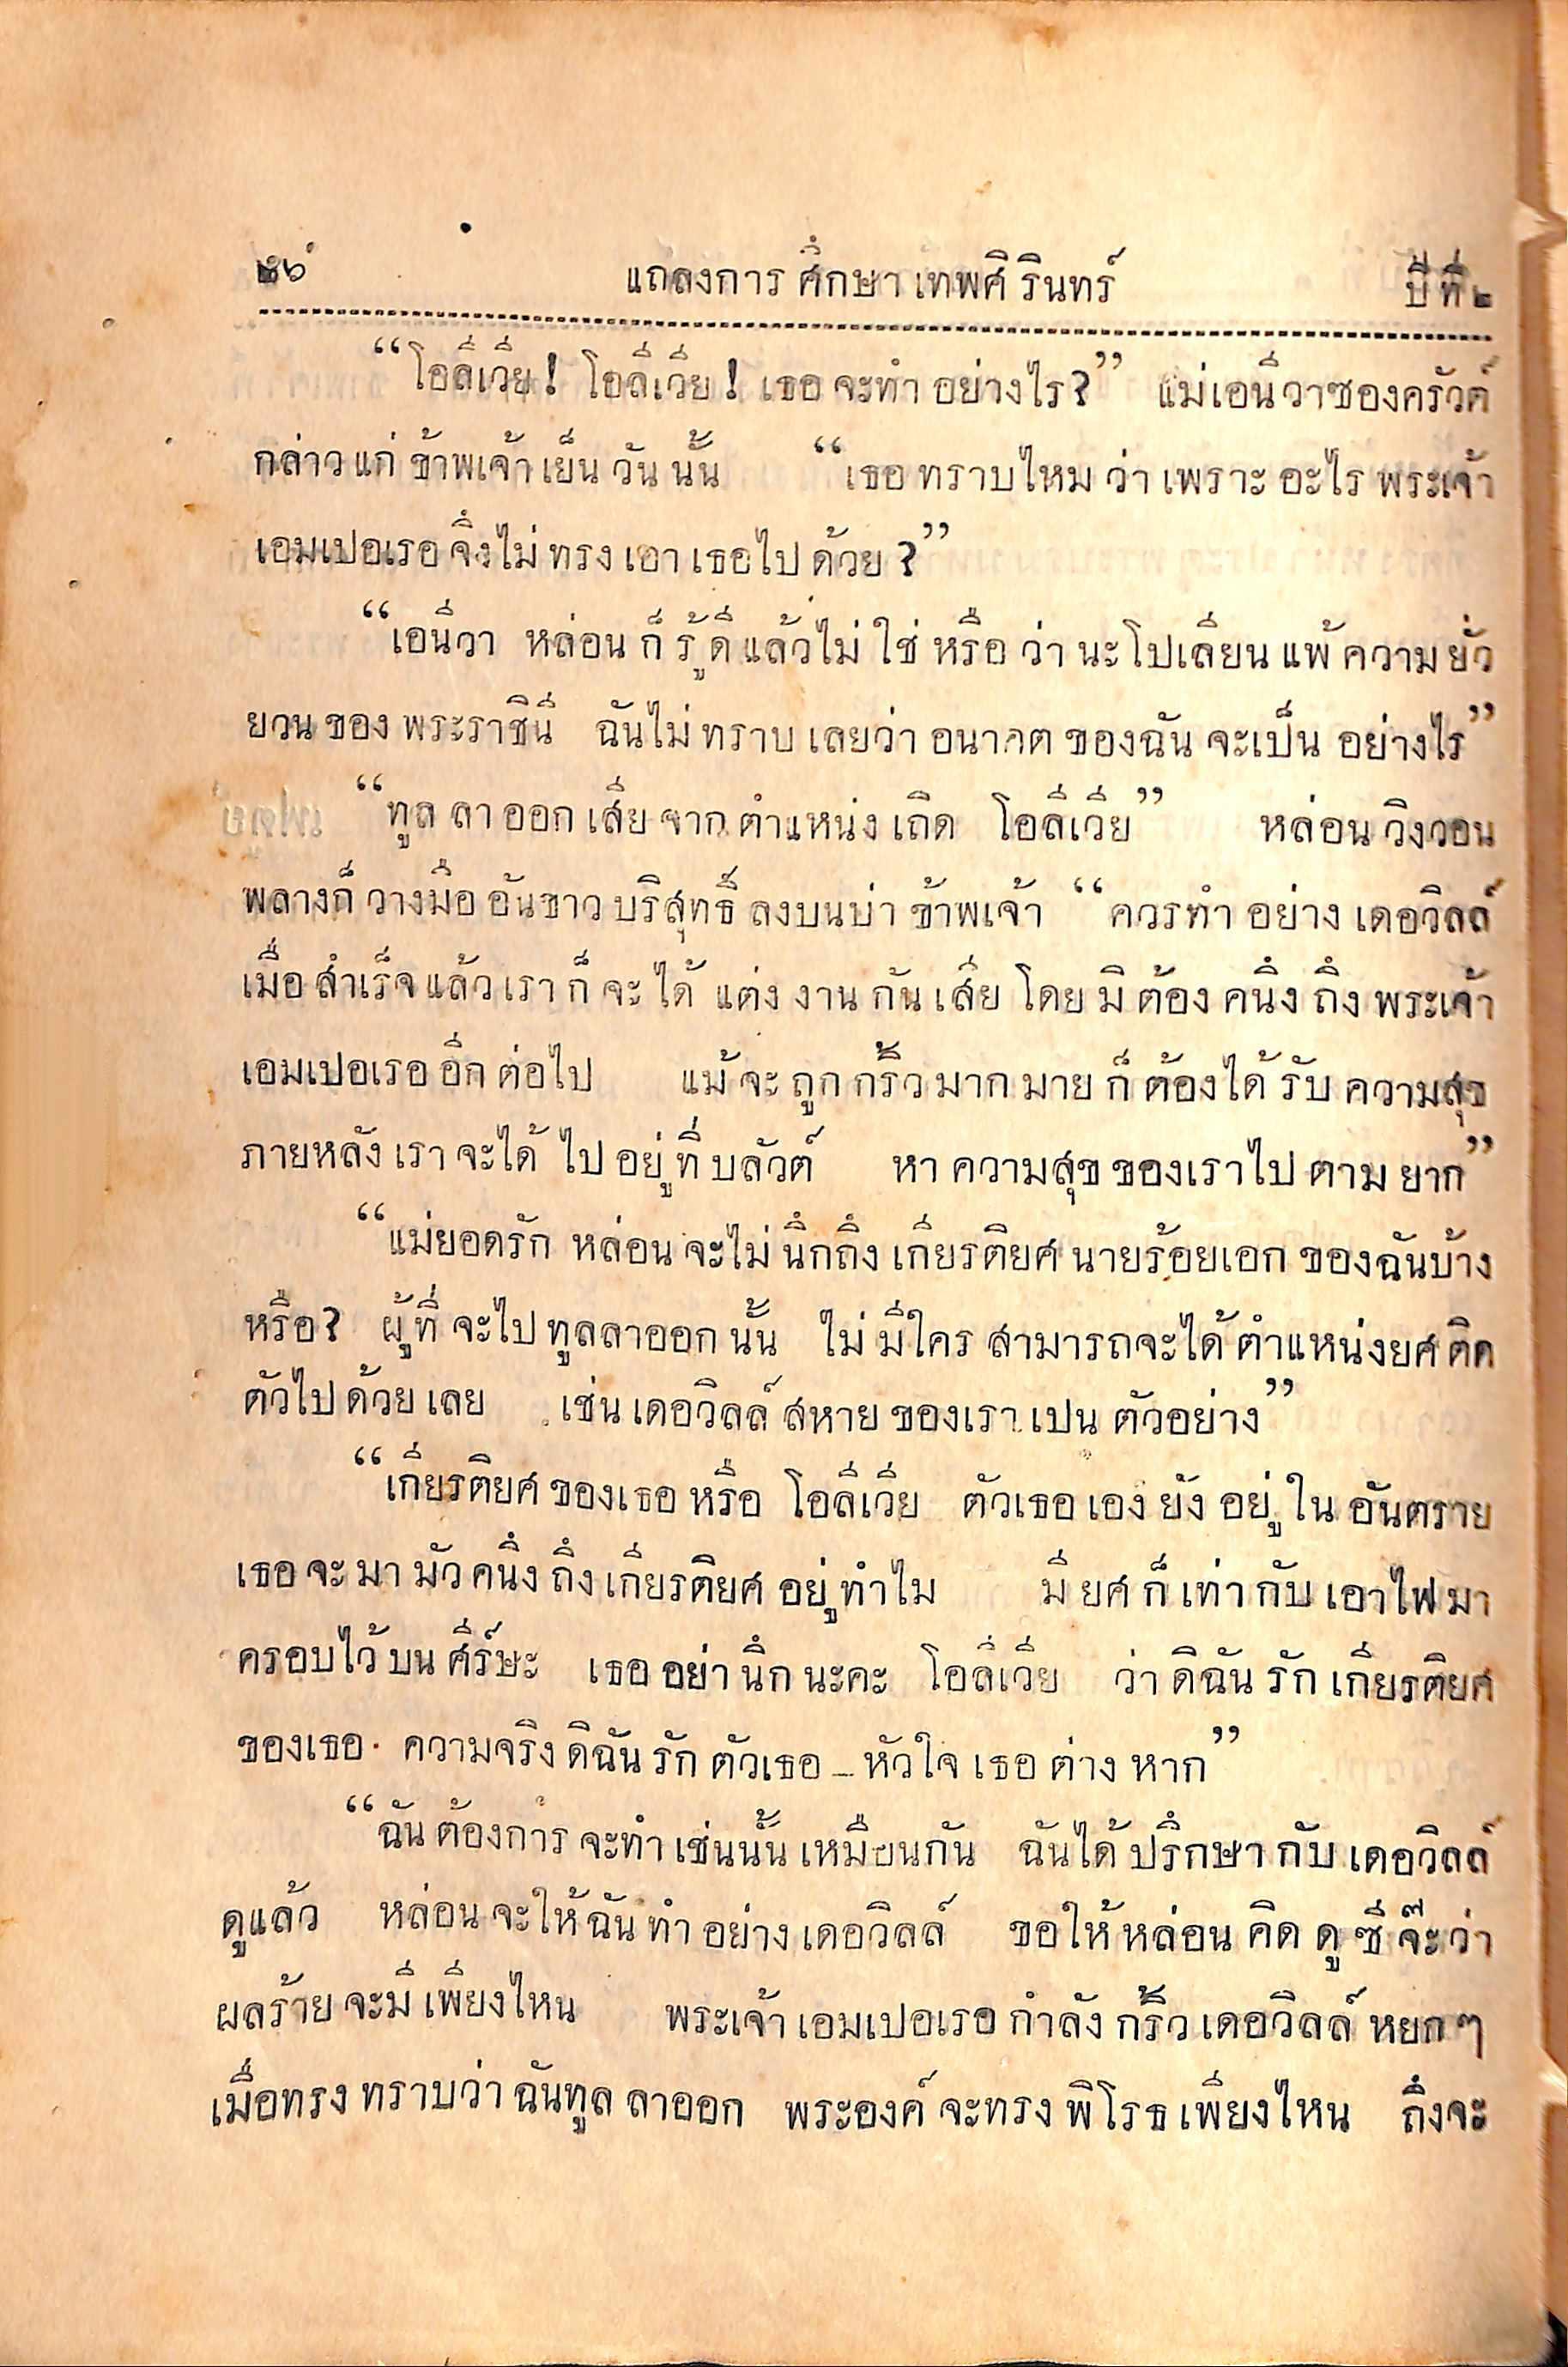 ๒๖ แถลงการศึกษาเทพศิรินทร์ ปีที่ ๒
“โอลีเวีย! โอลีเวีย! เธอจะทำอย่างไร?” แม่เอนีวาซองครัวค์
กล่าวแก่ข้าพเจ้าเย็นวันนั้น “เธอทราบไหมว่าเพราะอะไรพระเจ้า
เอมเปอเรอจึงไม่ทรงเอาเธอไปด้วย?”
“เอนีวา หล่อนก็รู้ดีแล้วไม่ใช่หรือว่านะโปเลียนแพ้ความยั่ว
ยวนของพระราชินี ฉันไม่ทราบเลยว่าอนาคตของฉันจะเป็นอย่างไร”
“ทูลลาออกเสียจากตำแหน่งเถิด โอลีเวีย” หล่อนวิงวอน
พลางก็วางมืออันขาวบริสุทธิ์ลงบนบ่าข้าพเจ้า “ควรทำอย่างเดอวิลล์
เมื่อสำเร็จแล้วเราก็จะได้แต่งงานกันเสียโดยมิต้องคนึงถึงพระเจ้า
เอมเปอเรออีกต่อไป แม้จะถูกกริ้วมากมายก็ต้องได้รับความสุข
ภายหลังเราจะได้ไปอยู่ที่บลัวต์ หาความสุขของเราไปตามยาก”
“แม่ยอดรัก หล่อนจะไม่นึกถึงเกียรติยศนายร้อยเอกของฉันบ้าง
หรือ? ผู้ที่จะไปทูลลาออกนั้น ไม่มีใครสามารถจะได้ตำแหน่งยศติด
ตัวไปด้วยเลย เช่นเดอวิลล์สหายของเราเปนตัวอย่าง”
“เกียรติยศของเธอหรือ โอลีเวีย ตัวเธอเองยังอยู่ในอันตราย
เธอจะมามัวคนึงถึงเกียรติยศอยู่ทำไม มียศก็เท่ากับเอาไฟมา
ครอบไว้บนศีร์ษะ เธออย่านึกนะคะ โอลีเวีย ว่าดิฉันรักเกียรติยศ
ของเธอ. ความจริงดิฉันรักตัวเธอ – หัวใจเธอต่างหาก”
“ฉันต้องการจะทำเช่นนั้นเหมือนกัน ฉันได้ปรึกษากับเดอวิลล์
ดูแล้ว หล่อนจะให้ฉันทำอย่างเดอวิลล์ ขอให้หล่อนคิดดูซีจ๊ะว่า
ผลร้ายจะมีเพียงไหน พระเจ้าเอมเปอเรอกำลังกริ้วเดอวิลล์หยกๆ
เมื่อทรงทราบว่าฉันทูลลาออก พระองค์จะทรงพิโรธเพียงไหน ถึงจะ